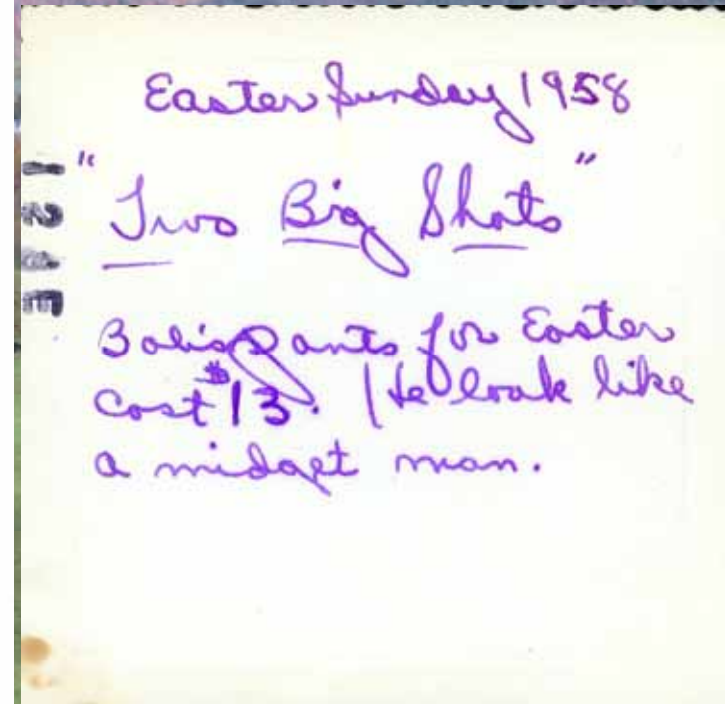 Easter Sunday 1958
"Two Big Shots"
Bob's pants for Easter
cost $13. He look like
a midget man.